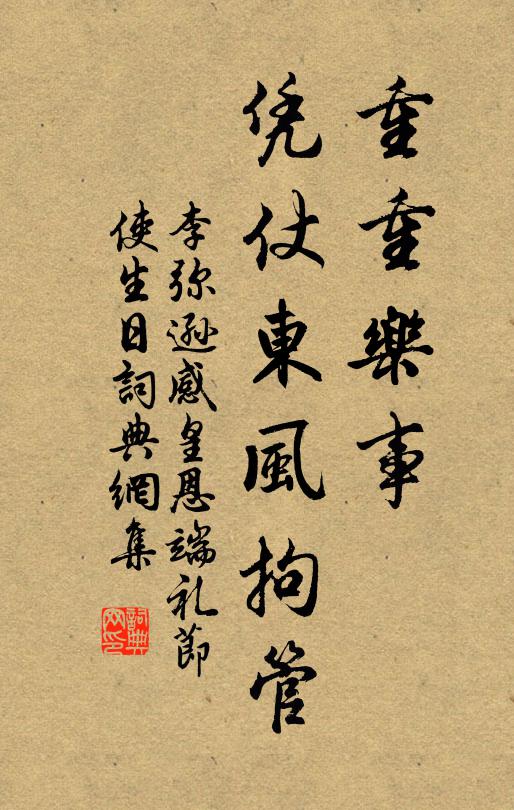 重重樂事
凭仗東風拘管
李弥遜感皇恩端礼節
使生日詞典網集
詞典网印